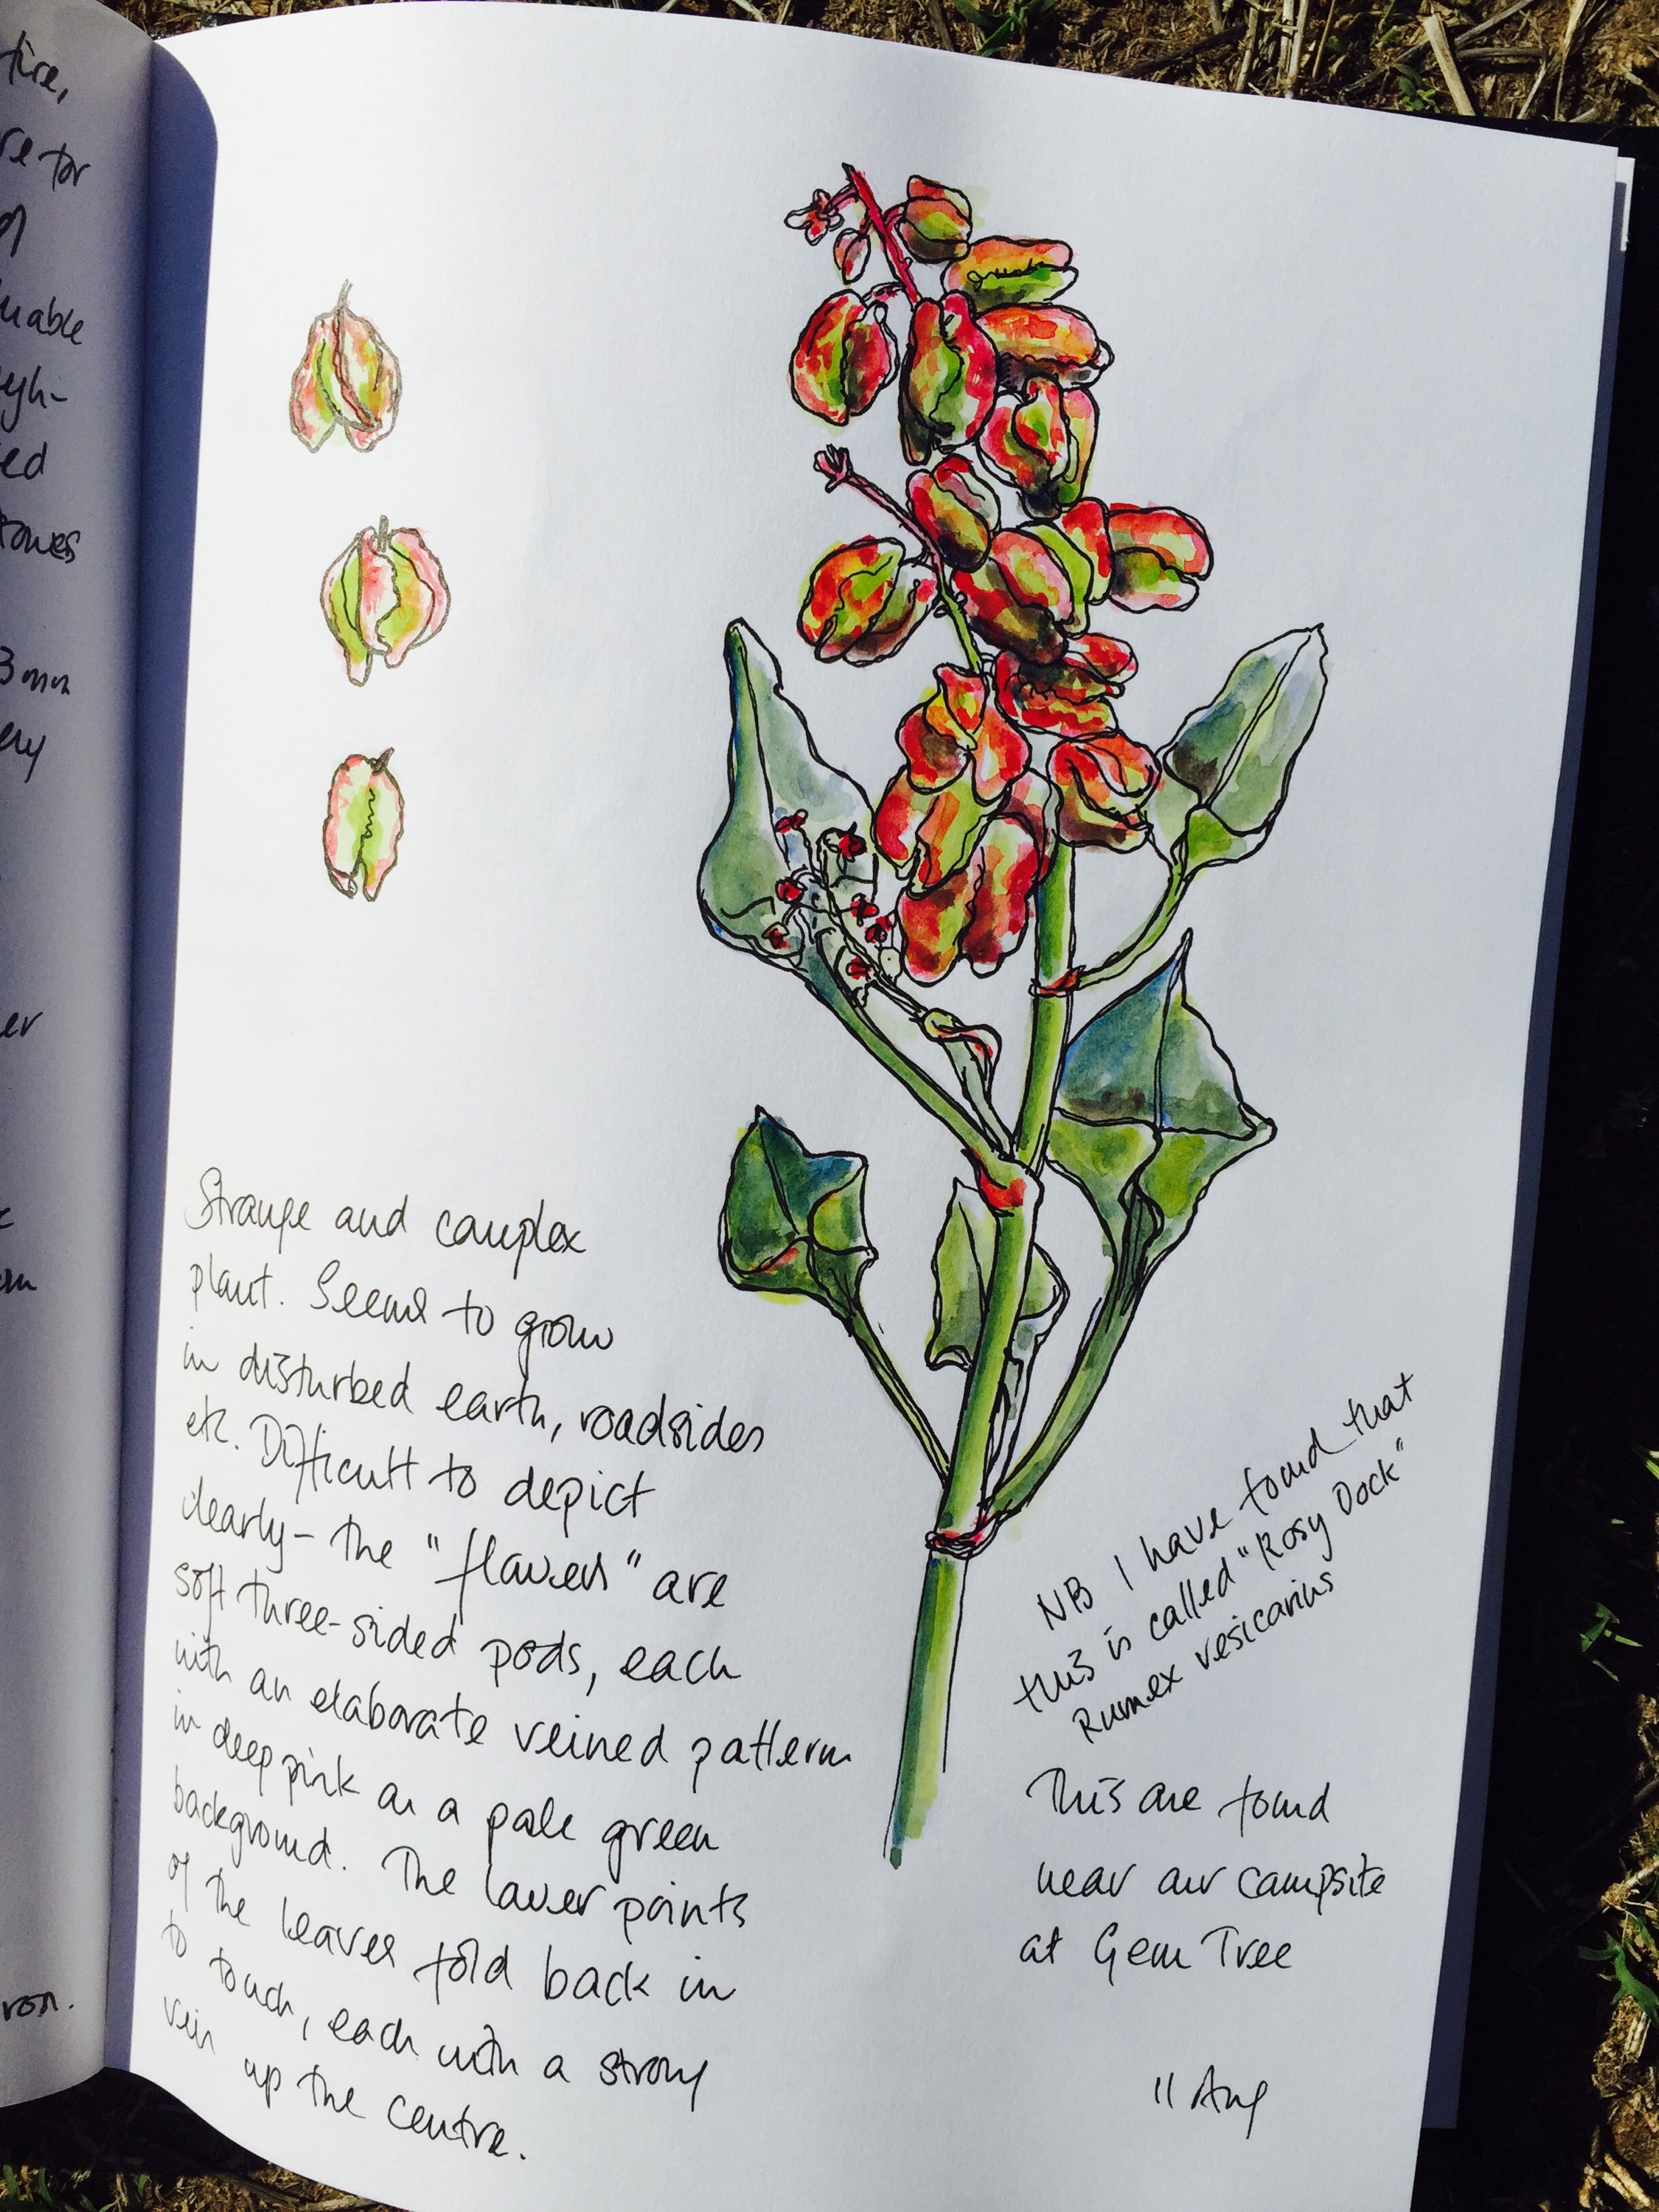 tire,
re for
of
uable
eigh-
ed
tones
3 mm
ery
er
ron.
Strange and complex
plant. Seems to grow
in disturbed earth, roadsides
etc. Difficult to depict
clearly – the "flowers" are
soft three-sided pods, each
with an elaborate veined pattern
in deep pink on a pale green
background. The lower points
of the leaves fold back in
to touch, each with a strong
vein up the centre.
NB I have found that
this is called "Rosy Dock"
Rumex vesicarius
This are found
near our campsite
at Gem Tree
11 Aug